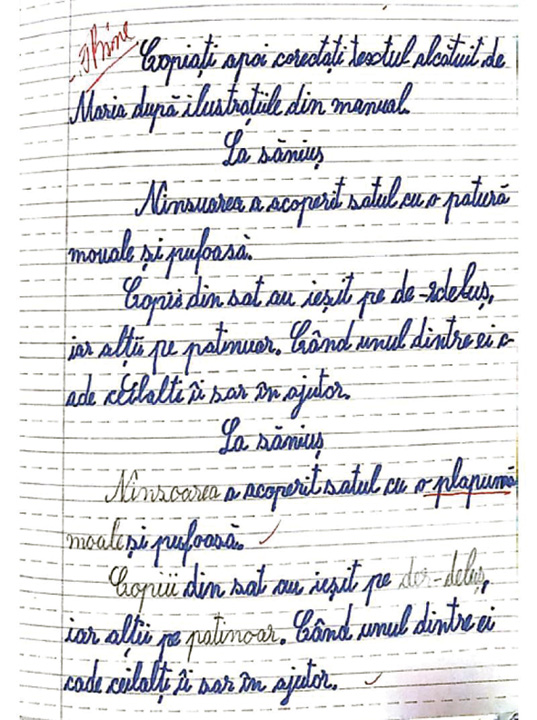 Bine
Copiați apoi corectați textul alcătuit de
Maria după ilustrațiile din manual.
La săniuș
Ninsuarea a acoperit satul cu o patură
mouale și pufoasă.
Copii din sat au ieșit pe de-rdeluș,
iar alții pe patinuar. Când unul dintre ei c-
ade ceilalți îi sar în ajutor.
La săniuș
Ninsoarea a acoperit satul cu o plapumă
moale și pufoasă.
Copiii din sat au ieșit pe der-deluș,
iar alții pe patinoar. Când unul dintre ei
cade ceilalți îi sar în ajutor.